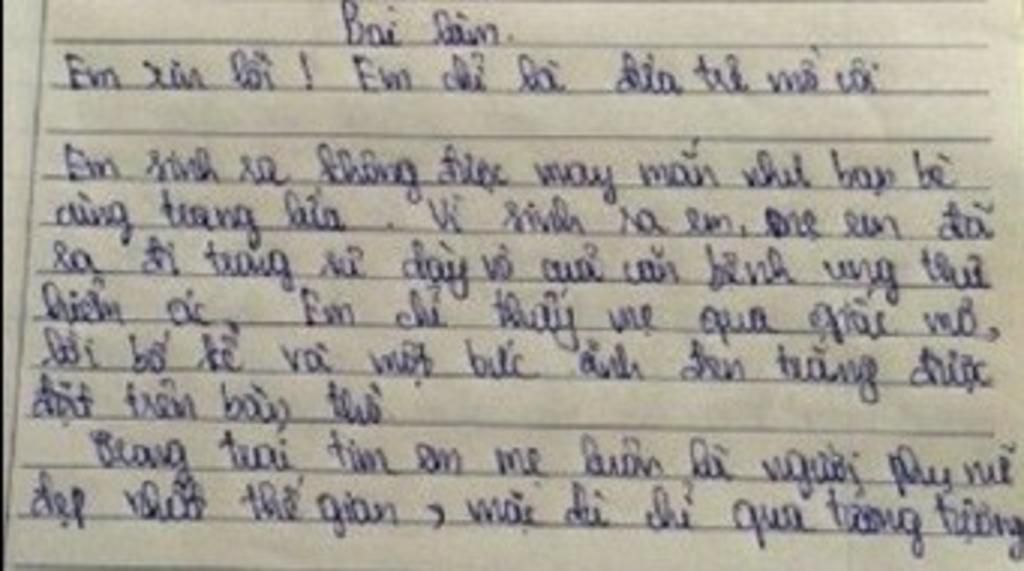 Bài làm.
Em xin lỗi ! Em chỉ là đứa trẻ mồ côi
Em sinh ra không được may mắn như bạn bè
cùng trang lứa . Vì sinh ra em, mẹ em đã
ra đi trong sự dày vò của căn bệnh ung thư
hiểm ác. Em chỉ thấy mẹ qua giấc mơ,
lời bố kể và một bức ảnh đen trắng được
đặt trên bàn thờ
Trong trái tim em mẹ luôn là người phụ nữ
đẹp nhất thế gian, mặc dù chỉ qua tưởng tượng